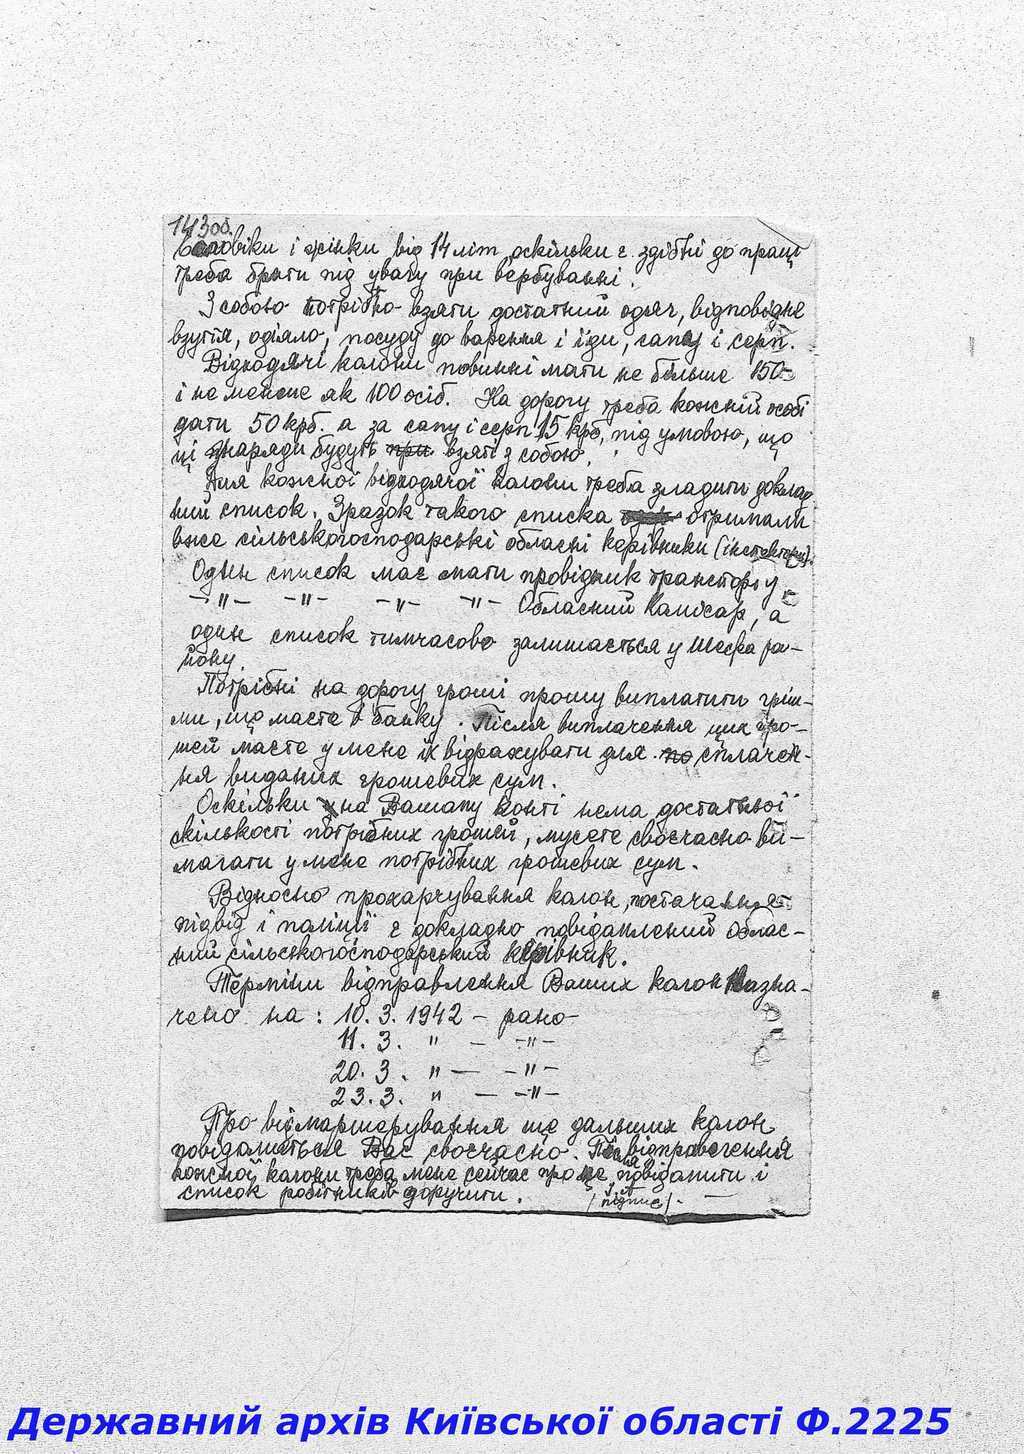 143 об.
Чоловіки і жінки від 14 літ, оскільки є здібні до праці
треба брати під увагу при вербуванні.
З собою потрібно взяти достатний одяг, відповідне
взуття, одіяло, посуду до варення і їди, сапу і серп.
Відходячі колони повинні мати не більше 150
і не менше як 100 осіб. На дорогу треба кожній особі
дати 50 крб. а за сапу і серп 15 крб, під умовою, що
ці знаряди будуть при взяті з собою.
Для кожної відходячої колони треба зладити доклад
ний список. Зразок такого списка отримали
вже сільськогосподарські обласні керівники (інспектори).
Один список має мати провідник транспорту,
—"— —"— —"— —"— Обласний Комісар, а
один список тимчасово залишається у Шефа ра-
йону.
Потрібні на дорогу гроші прошу виплатити гріш-
ми, що маєте в банку. Після виплачення цих гро-
шей маєте у мене їх відрахувати для по сплачен-
ня виданих грошевих сум.
Оскільки у на Вашому конті нема достатньої
скількості потрібних грошей, мусете своєчасно ви-
магати у мене потрібних грошевих сум.
Відносно прохарчування колон, постачання
підвід і поліції є докладно повідомлений облас-
ний сільськогосподарський керівник.
Терміни відправлення Ваших колон назна-
чено на: 10. 3. 1942 – рано
11. 3. " — —"—
20. 3. " — —"—
23. 3. " — —"—
Про відмаршерування ще дальших колон
повідомиться Вас своєчасно. Після відправлення
кожної колони треба мене сейчас про це повідомити і
список робітників доручити. /підпис/. —
Державний архів Київської області Ф.2225